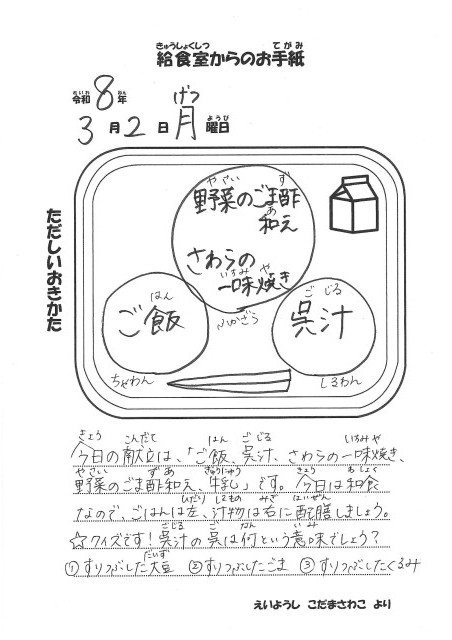 きゅうしょくしつ てがみ
給食室からのお手紙
れいわ ねん げつ
令和8年
3月2日月曜日
ようび
ただしいおきかた
やさい ず
野菜のごま酢
あ
和え
さわらの
いちみ や
一味焼き
はん
ご飯
ちゃわん
ごじる
呉汁
しるわん
きょう こんだて はん ごじる いちみや
今日の献立は、「ご飯、呉汁、さわらの一味焼き、
やさい ずあ ぎゅうにゅう きょう わしょく
野菜のごま酢和え、牛乳」です。今日は和食
ひだり しるもの みぎ はいぜん
なので、ごはんは左、汁物は右に配膳しましょう。
ごじる ご なん いみ
☆クイズです!呉汁の呉は何という意味でしょう?
だいず
①すりつぶした大豆 ②すりつぶしたごま ③すりつぶしたくるみ
えいようし こだまさわこ より